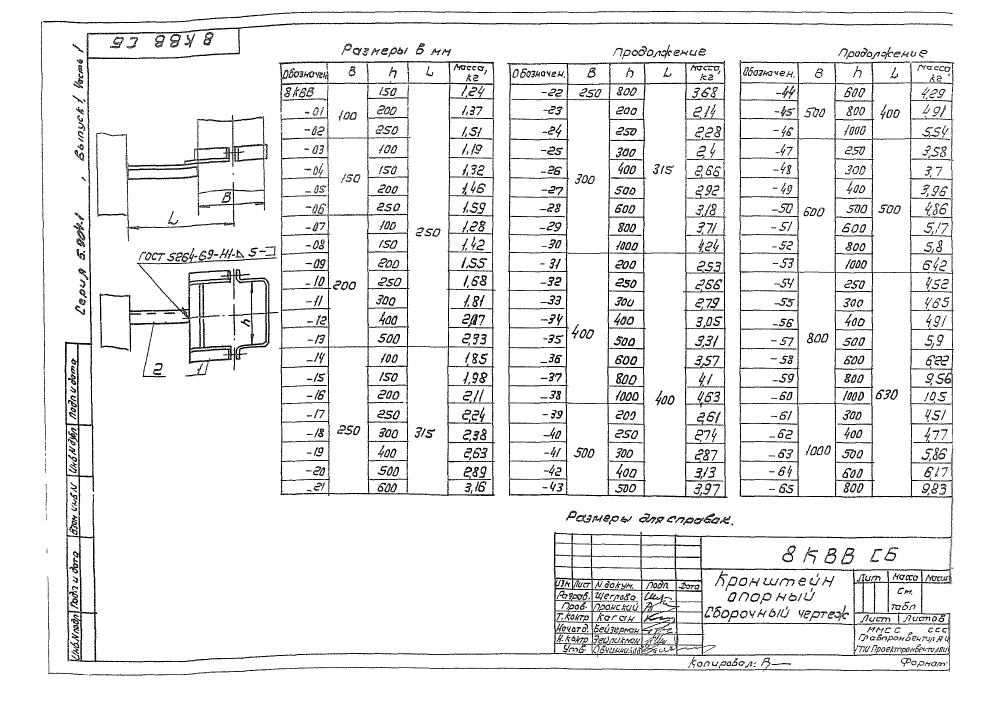 8 КВВ СБ
Серия 5.904-1, Выпуск 1, Часть 1
L
B
ГОСТ 5264-69-Н1-
5-
h
2
1
Размеры в мм
Обозначен. B h L Масса, кг
8КВВ 100 150 250 1,24
-01 200 1,37
-02 250 1,51
-03 150 100 1,19
-04 150 1,32
-05 200 1,46
-06 250 1,59
-07 200 100 1,28
-08 150 1,42
-09 200 1,55
-10 250 1,68
-11 300 1,81
-12 400 2,07
-13 500 2,33
-14 250 100 315 1,85
-15 150 1,98
-16 200 2,11
-17 250 2,24
-18 300 2,38
-19 400 2,63
-20 500 2,89
-21 600 3,16
Продолжение
Обозначен. B h L Масса, кг
-22 250 800 315 3,68
-23 300 200 2,14
-24 250 2,28
-25 300 2,4
-26 400 2,66
-27 500 2,92
-28 600 3,18
-29 800 3,71
-30 1000 4,24
-31 400 200 400 2,53
-32 250 2,66
-33 300 2,79
-34 400 3,05
-35 500 3,31
-36 600 3,57
-37 800 4,1
-38 1000 4,63
-39 500 200 2,61
-40 250 2,74
-41 300 2,87
-42 400 3,13
-43 500 3,97
Продолжение
Обозначен. B h L Масса, кг
-44 500 600 400 4,29
-45 800 4,91
-46 1000 5,54
-47 600 250 500 3,58
-48 300 3,7
-49 400 3,96
-50 500 4,86
-51 600 5,17
-52 800 5,8
-53 1000 6,42
-54 800 250 630 4,52
-55 300 4,65
-56 400 4,91
-57 500 5,9
-58 600 6,22
-59 800 9,56
-60 1000 10,5
-61 1000 300 4,51
-62 400 4,77
-63 500 5,86
-64 600 6,17
-65 800 9,83
Размеры для справок.
8 КВВ СБ
Изм Лист N докум. Подп Дата
Разраб. Щеглова
Пров Пронский
Т.контр Каган
Начотд. Бейзерман
Н.контр Зейликман
Утв Овчинников
Кронштейн
опорный
Сборочный чертеж
Лит Масса Масшт
См.
табл
Лист Листов
ММСС ССС
Главпромвентиля
ГПИ Проектпромвентиля
Копировал:
Формат
Инв.N подл Подп и дата Взам инв.N Инв.N дубл Подп и дата